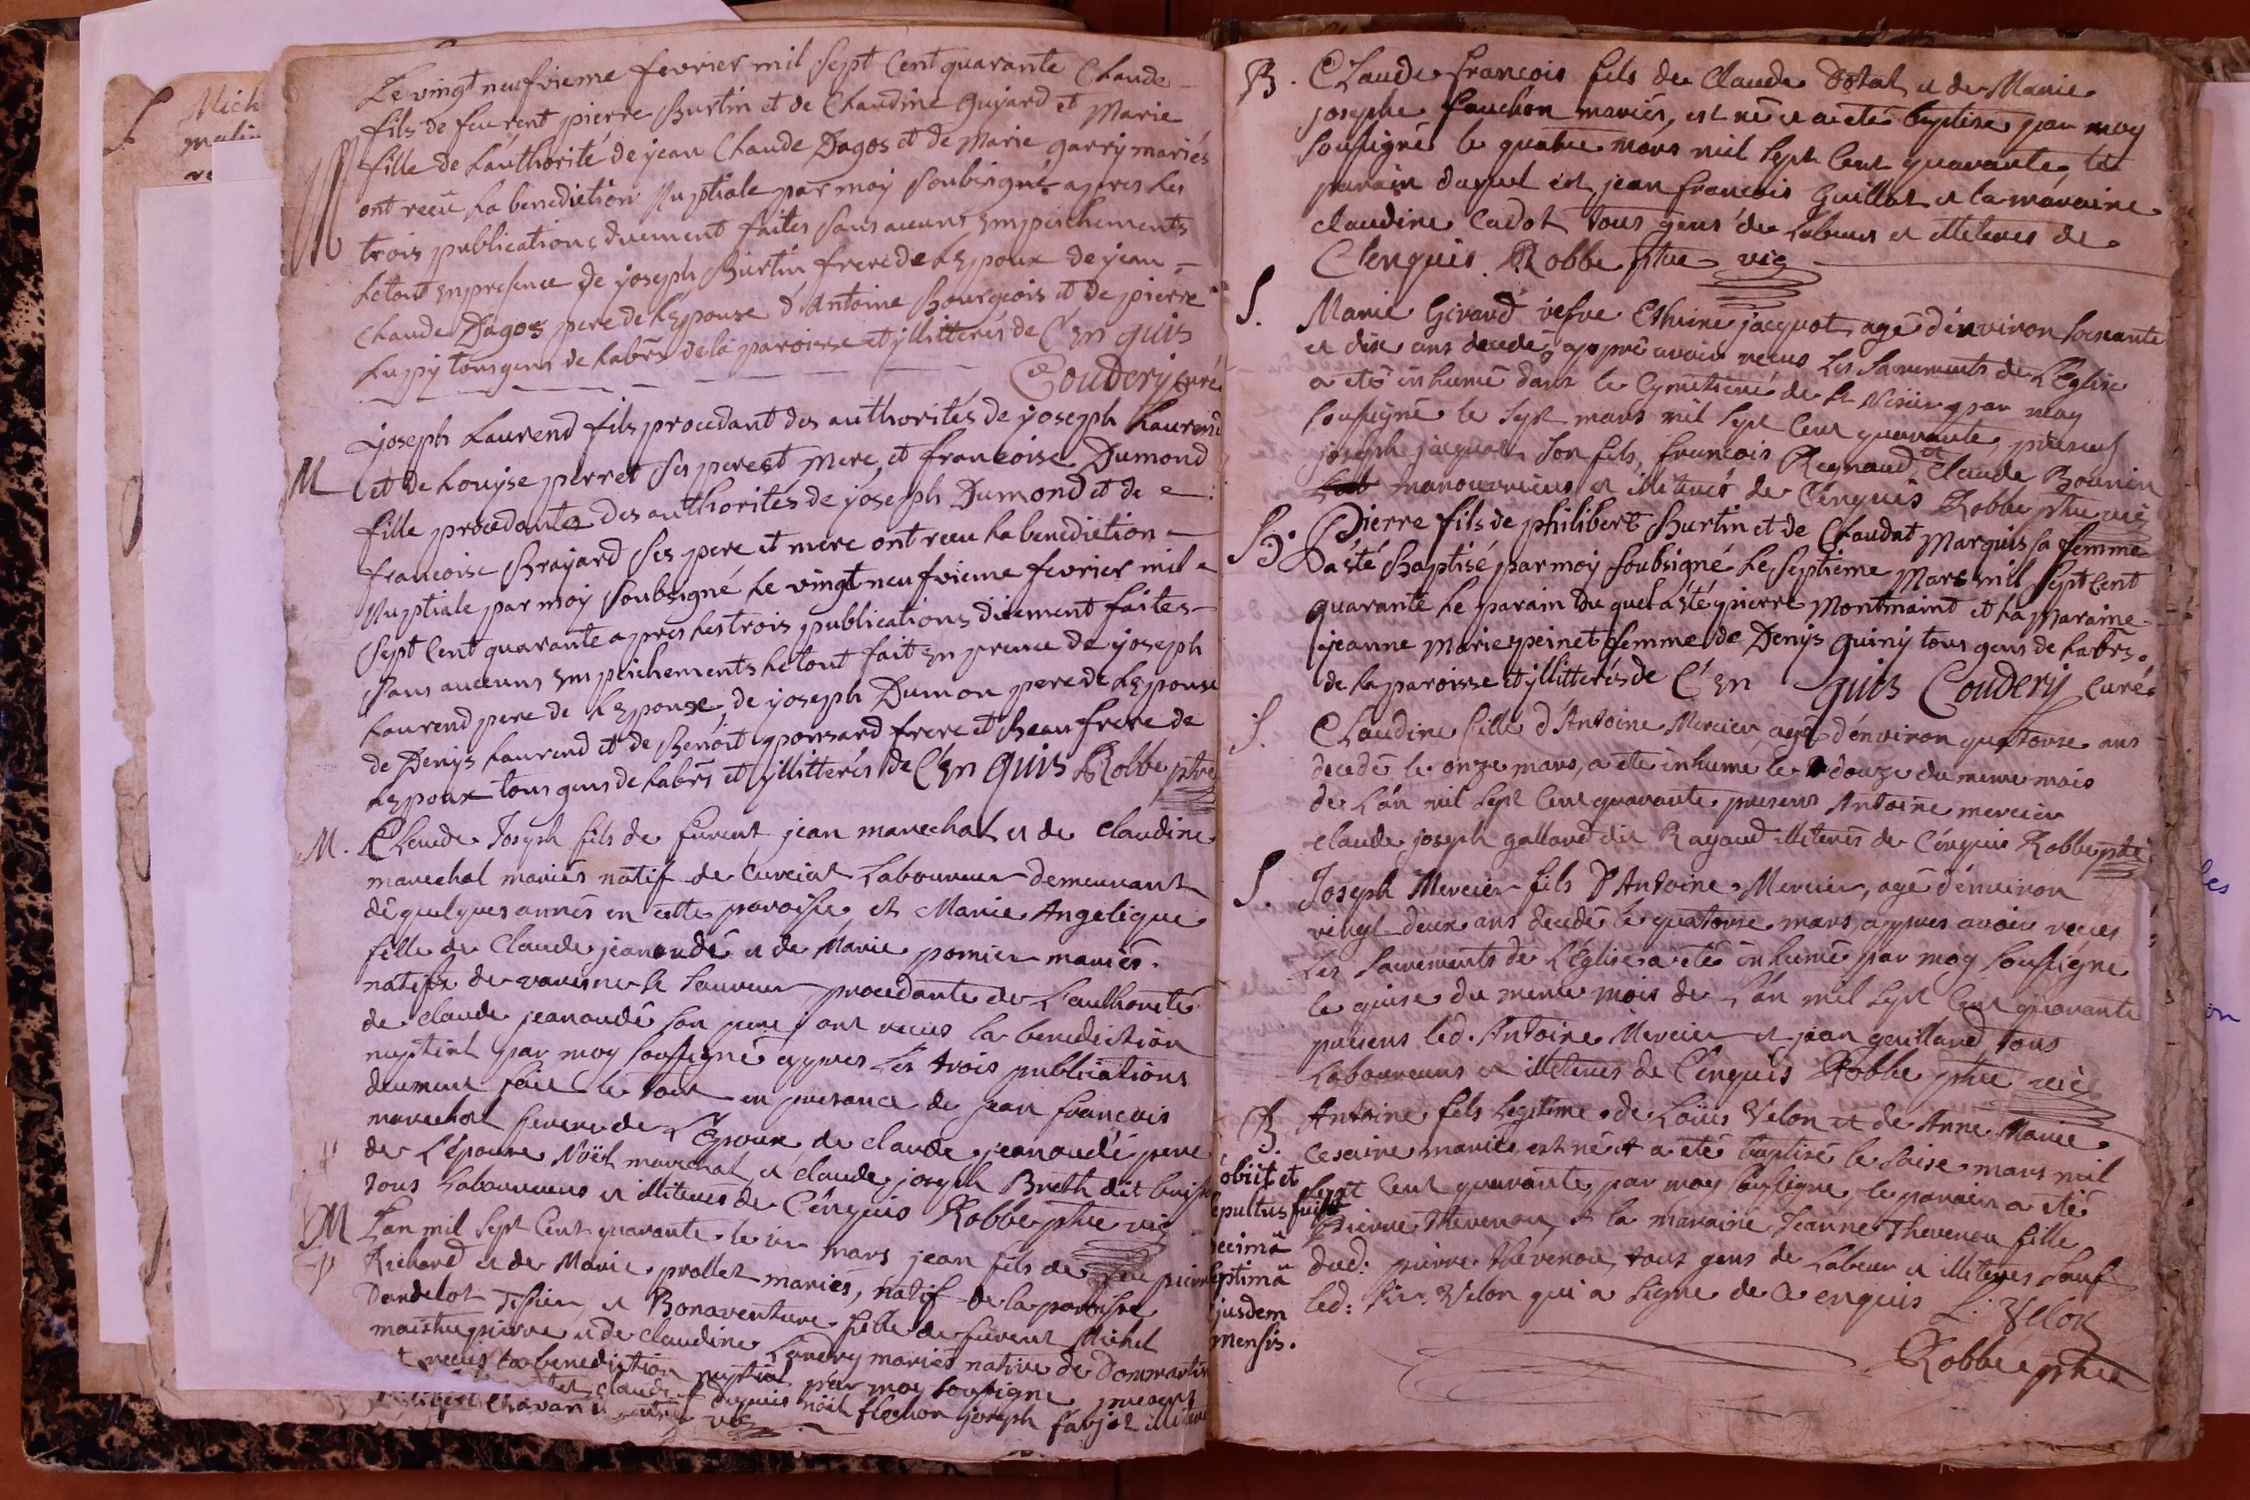 Le vingt neufvieme fevrier mil sept cent quarante Claude
fils de feu rent pierre Burtin et de Claudine Guyard et Marie
fille de L'authorité de jean Claude Dagos et de Marie garry mariés
M ont reçu la benediction Nuptiale par moy soubsigné apres les
trois publications duement faites sans aucuns Empeschements
Le tout en presence de joseph Burtin frere de L'Epoux de jean
Claude Dagos pere de L'Epouse d'Antoine Bourgeois et de pierre
Lupy tous gens de Labrs de la paroisse et yllitterés de C'En guis
Coudery Curé
joseph Laurend fils procedant des authorités de joseph Laurend
M et de Louyse perret ses pere et mere, et francoise Dumond
fille procedante des authorités de joseph Dumond et de
francoise Brayard ses pere et mere ont recu la benediction
Nuptiale par moy soubsigné Le vingt neufvieme fevrier mil
sept cent quarante apres les trois publications duement faites
sans aucuns Empeichements Le tout fait En prence de joseph
Laurend pere de L'Epoux, de joseph Dumon pere de L'Epouse
de Denys Laurend et de Benoit ponsard frere et Beau frere de
L'Epoux tous gens de Labrs et yllitterés de C'En guis Robbe ptre
M. Claude Joseph fils de furent jean marechal et de claudine
marechal mariés natif de Curciat Laboureur demeurant
dê quelques annés en cette paroisse et Marie Angelique
fille de Claude jeanaudé et de Marie pomier mariés.
natifve de varenne St Sauveur procedante de L'authorité
de claude jeanaudé son pere, ont recus la benediction
nuptial par moy soussigné appres Les trois publications
deument faite le tout en presance de jean francois
marechal frere de L'Epoux, de claude jeanaudé pere
de L'Epouse Noël marechal, et claude joseph Breth dit
tous Laboureurs et illiterés de Cênguis Robbe ptre vic
M L'an mil sept cent quarante le mars jean fils de feu pierre
Richard et de Marie prollet mariés, natif de la paroisse
Dandelot et Bonaventure fille de furent Michel
maistrepierre et de claudine mariés native de Dommartin
recus la benediction nuptial par moy soussigne presents
claude Dupuis noël flechon joseph favjot
Chavan vic
B. Claude francois fils de Claude Dotal et de Marie
josephe fauchon mariés, est né et a eté baptise par moy
soussigné le quatre mars mil sept cent quarante, le
parain duquel est jean francois Guillot et la maraine
claudine Cadot tous gens de Labeur et illiteres de
C'enguis Robbe ptre vic
S. Marie Girard vefve Ethiene jacquot, agé d'environ soixante
et dix ans decedé, apprê avoir recus Les sacrements de L'Eglise
a eté inhumé dans le Cymetiere de par moy
soussigné le sept mars mil sept cent quarante, present
joseph jacquot son fils, francois Regnaud, et Claude Bounin
manouvriers et illiterés de Cênguis Robbe ptre vic
B. Pierre fils de philibert Burtin et de Claudat Marguis sa femme
a Esté Baptisé par moy soubsigné Le septieme Mars mil sept cent
quarante Le parain du quel a Esté pierre Montmaint et La Maraine
jeanne Marie peinet femme de Denys Guiny tous gens de Labrs.
de La paroisse et yllitterés de C'En guis Coudery Curé
S. Claudine fille d'Antoine Mercier, agé d'énviron quatorse ans
decedé le onze mars, a ete inhumé le douze du meme mois
de L'an mil sept cent quarante presents Antoine mercier
claude joseph galland dit Ragaud illiterés de Cênguis Robbe ptre
S. Joseph Mercier fils D'Antoine Mercier, agé d'énviron
vingt deux ans decedé le quatorse mars, appres avoir recus
Les sacrements de L'Eglise a eté inhumé par moy soussigne
le quinse du meme mois de L'an mil sept cent quarante
presens led. Antoine Mercier et jean guilland tous
Laboureurs et illiteres de C'enguis Robbe ptre vic
B. Antoine fils legitime de Loüis Velon et de Anne Marie
Cesaire mariés est né et a eté baptisé le saise mars mil
sept cent quarante par moy soussigne le parain a eté
pierre Thevenou, et la maraine Jeanne Thevenon fille
dud: pierre Thevenou, tous gens de Labeur et illiteres sauf
led: Sr. Velon qui a signe de C enguis L. Velon
Robbe ptre
obiit et
sepultus fuit
decimâ
septimâ
ejusdem
mensis.